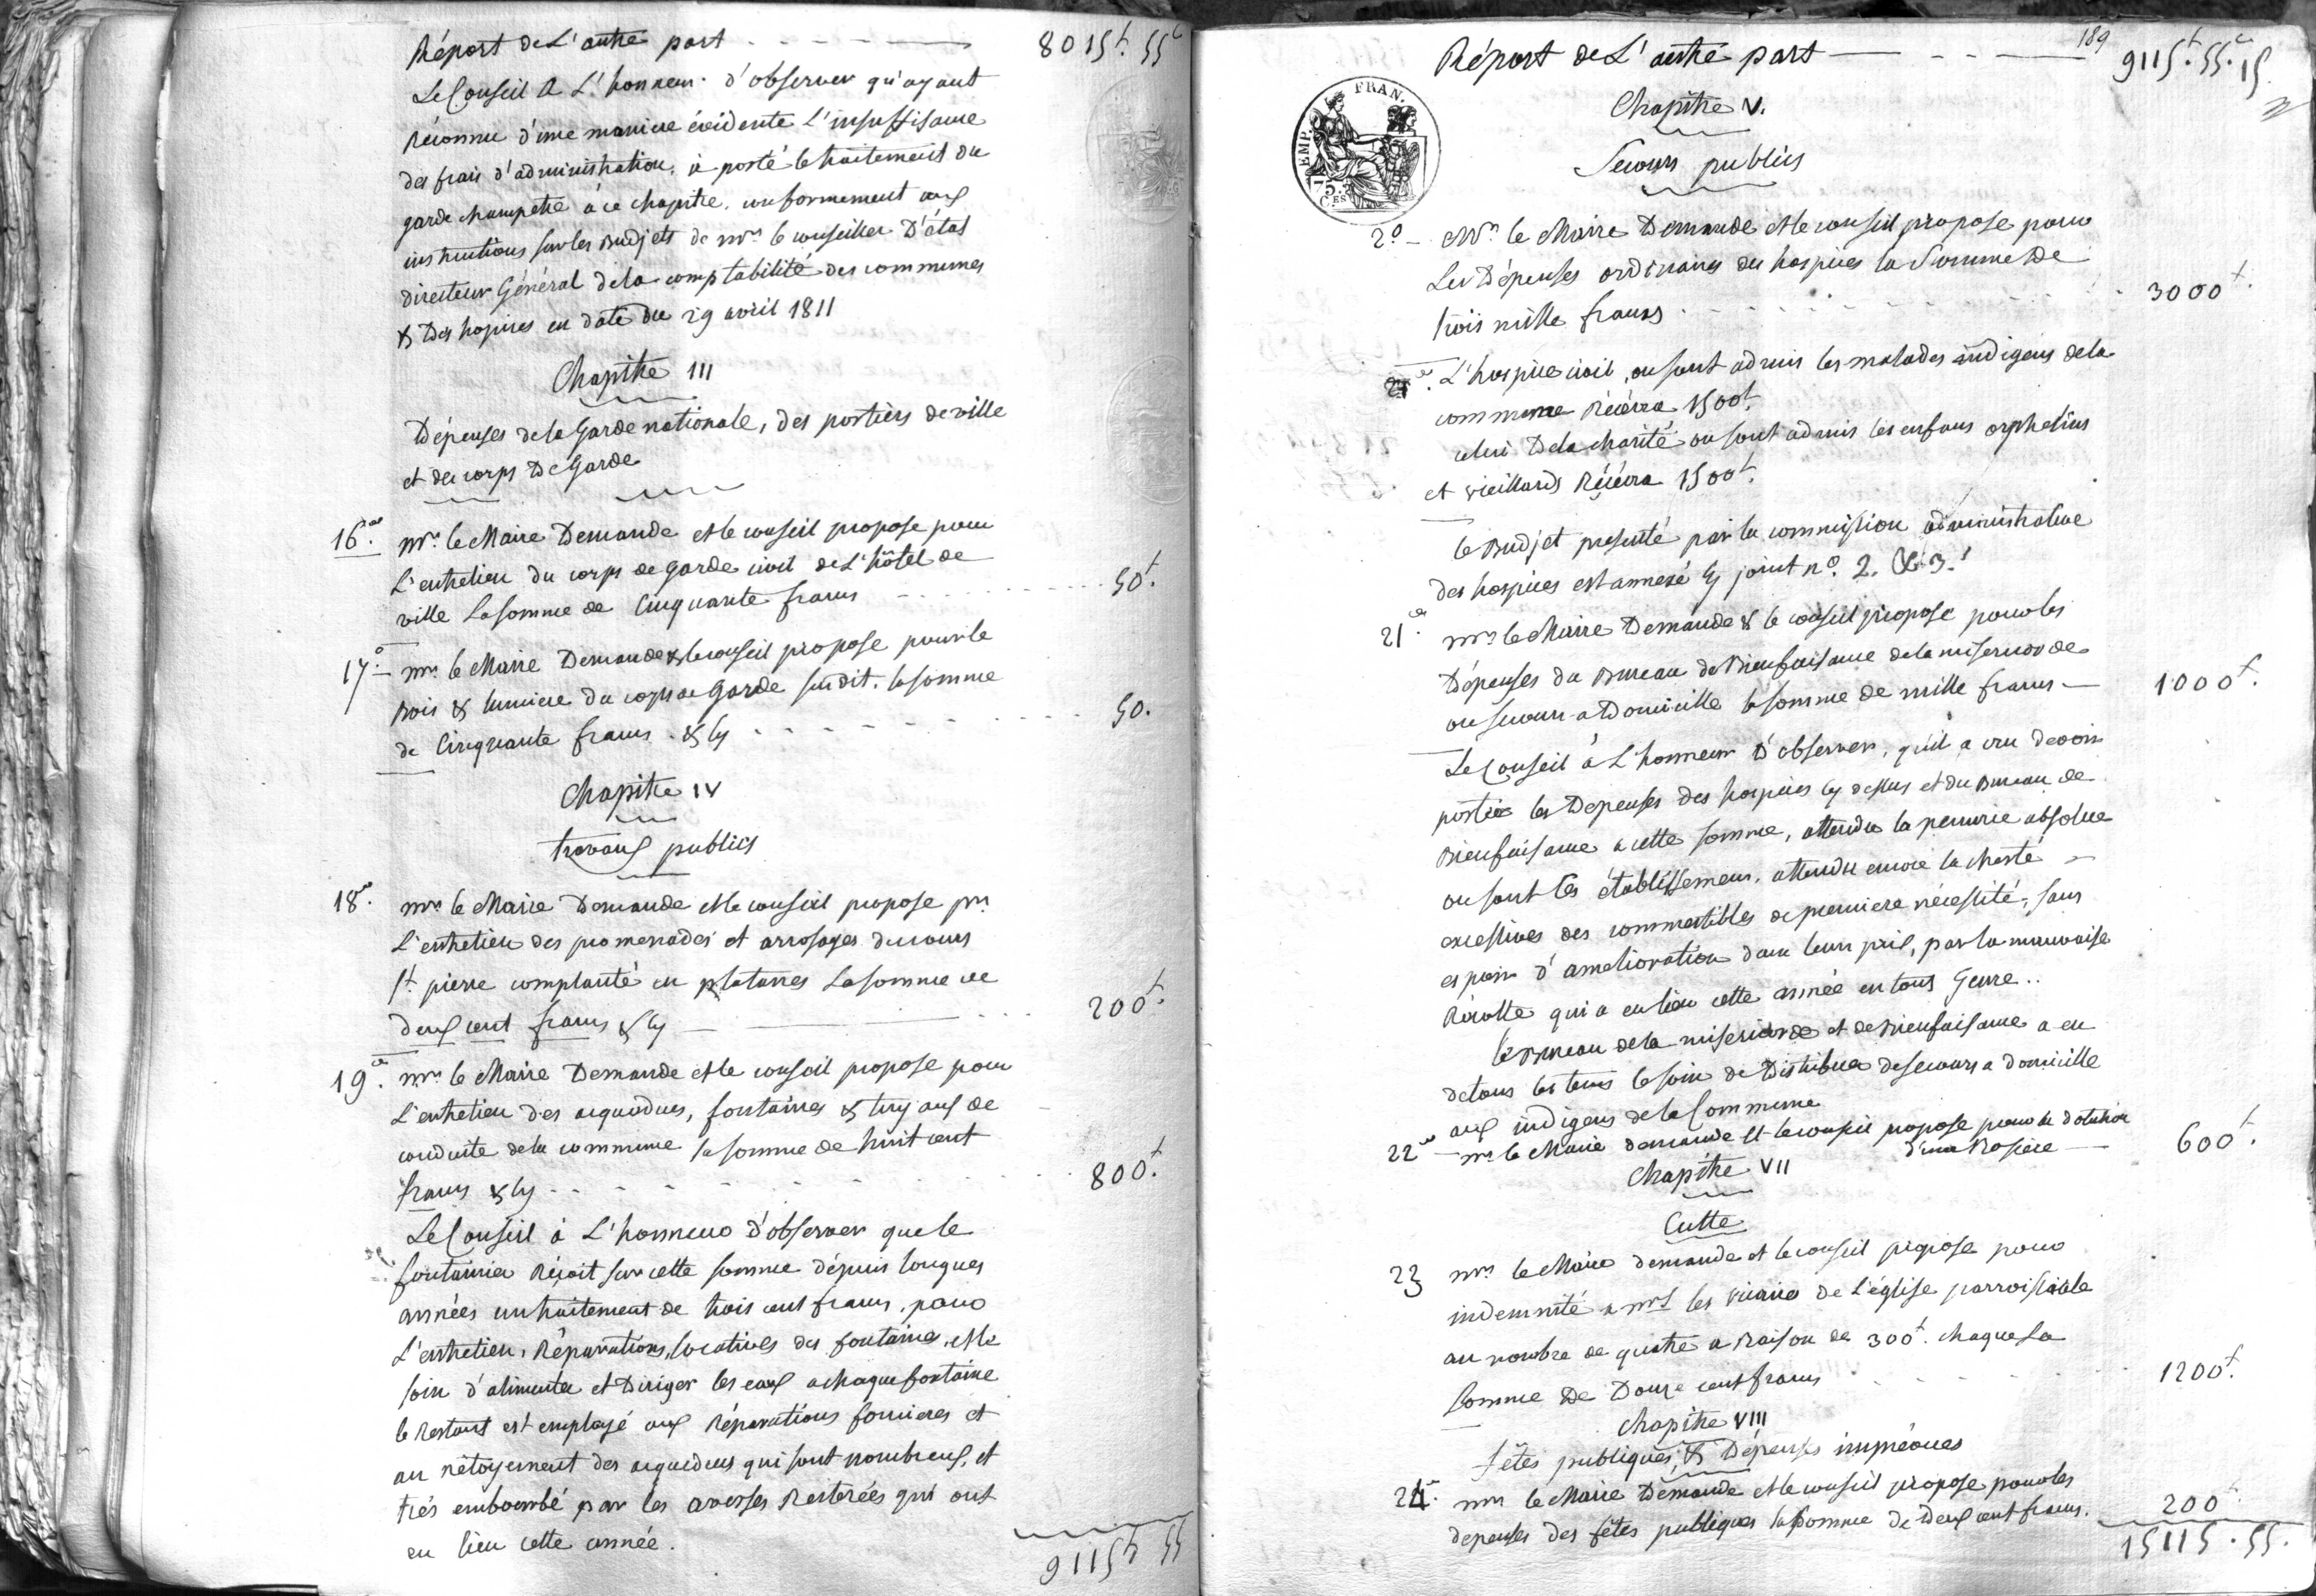 Réport de L'autre part - - - - 8015t. 55c
Le Conseil a L'honneur d'observer qu'ayant
réconnu d'une maniere évidente L'insuffisance
des frais d'administration, à porté le traitement du
garde champetre à ce chapitre, conformement aux
instructions sur les Budjets de mr. le conseiller D'état
directeur Général de la comptabilité des communes
& Des hospices en date du 29 avril 1811
Chapitre III
Dépenses de la Garde nationale, des portiers de ville
et des corps De Garde
16.° mr. le Maire Demande et le conseil propose pour
L'entretien du corps de garde civil de L'hôtel de
ville La somme de Cinquante francs - - - 50t.
17.° mr. le Maire Demande & le conseil propose pour le
Bois & lumiere du corps de Garde susdit. la somme
de Cinquante francs & cy - - - 50.
Chapitre IV
travaux publics
18.° mr. le Maire Demande et le conseil propose pr.
L'entretien des promenades et arrosages du cours
St. pierre complanté en platanes La somme de
deux cent francs & cy - - - 200t.
19.° mr. le Maire Demande et le conseil propose pour
L'entretien des aqueducs, fontaines & tuyaux de
conduite de la commune la somme de huit cent
francs & cy - - - 800t.
Le Conseil à L'honneur d'observer que le
fontainier réçoit sur cette somme dépuis longues
années un traitement de trois cent francs, pour
L'entretien, Réparations locatives des fontaines, et le
soin d'alimenter et Diriger les eaux a chaque fontaine
le Restant est employé aux réparations foncieres et
au nétoyement des aqueducs qui sont nombreux, et
trés embourbé par les averses Reiterées qui ont
eu lieu cette année.
9115t 55
189
Réport de L'autre part - - - 9115t. 55c. 15
EMP. FRAN.
75.
C.ES
Chapitre V.
Secours publics
2° - Mr. le Maire Demande et le conseil propose pour
Les Dépenses ordinaires des hospices la Somme De
trois mille francs - - - 3000t.
L'hospice civil, ou sont admis les malades indigens de la
commune Récévra 1500t.
celui De la charité ou sont admis les enfans orphelins
et vieillards Récévra 1500t.
le Budjet presenté par la commission administrative
des hospices est annexé cy joint n°. 2. & 3.
21.° mr. le Maire Demande & le conseil propose pour les
Dépenses du Bureau de Bienfaisance de la misericorde
ou secours a Domicille la somme de mille francs - 1000t.
Le Conseil à L'honneur D'observer, qu'il a cru devoir
porter les Depenses des hospices cy dessus et du Bureau de
Bienfaisance a cette somme, attendu la penurie absolue
ou sont ces établissemens. attendu encore la cherté
excessives des commestibles de premiere nécessité, sans
espoir d'amelioration dans leurs prix, par la mauvaise
Récolte qui a eu lieu cette année en tous Genre..
le Bureau de la misericorde et de Bienfaisance a eu
de tous les tems le soin de Distribuer des secours a domicille
aux indigens de la Commune
22 mr. le Maire demande et le conseil propose pour la dotation
d'une Rosiere - 600t.
Chapitre VII
Culte
23 mr. le Maire demande et le conseil propose pour
indemnité a mrs les vicaires de L'église parroissiale
au nombre de quatre a Raison de 300t. chaque La
somme De Douze cent francs - - - 1200t.
Chapitre VIII
fêtes publiques, & Dépenses imprévues
24.° mr. le Maire Demande et le conseil propose pour les
depenses des fêtes publiques la somme de Deux cent francs. 200t
15115.55.